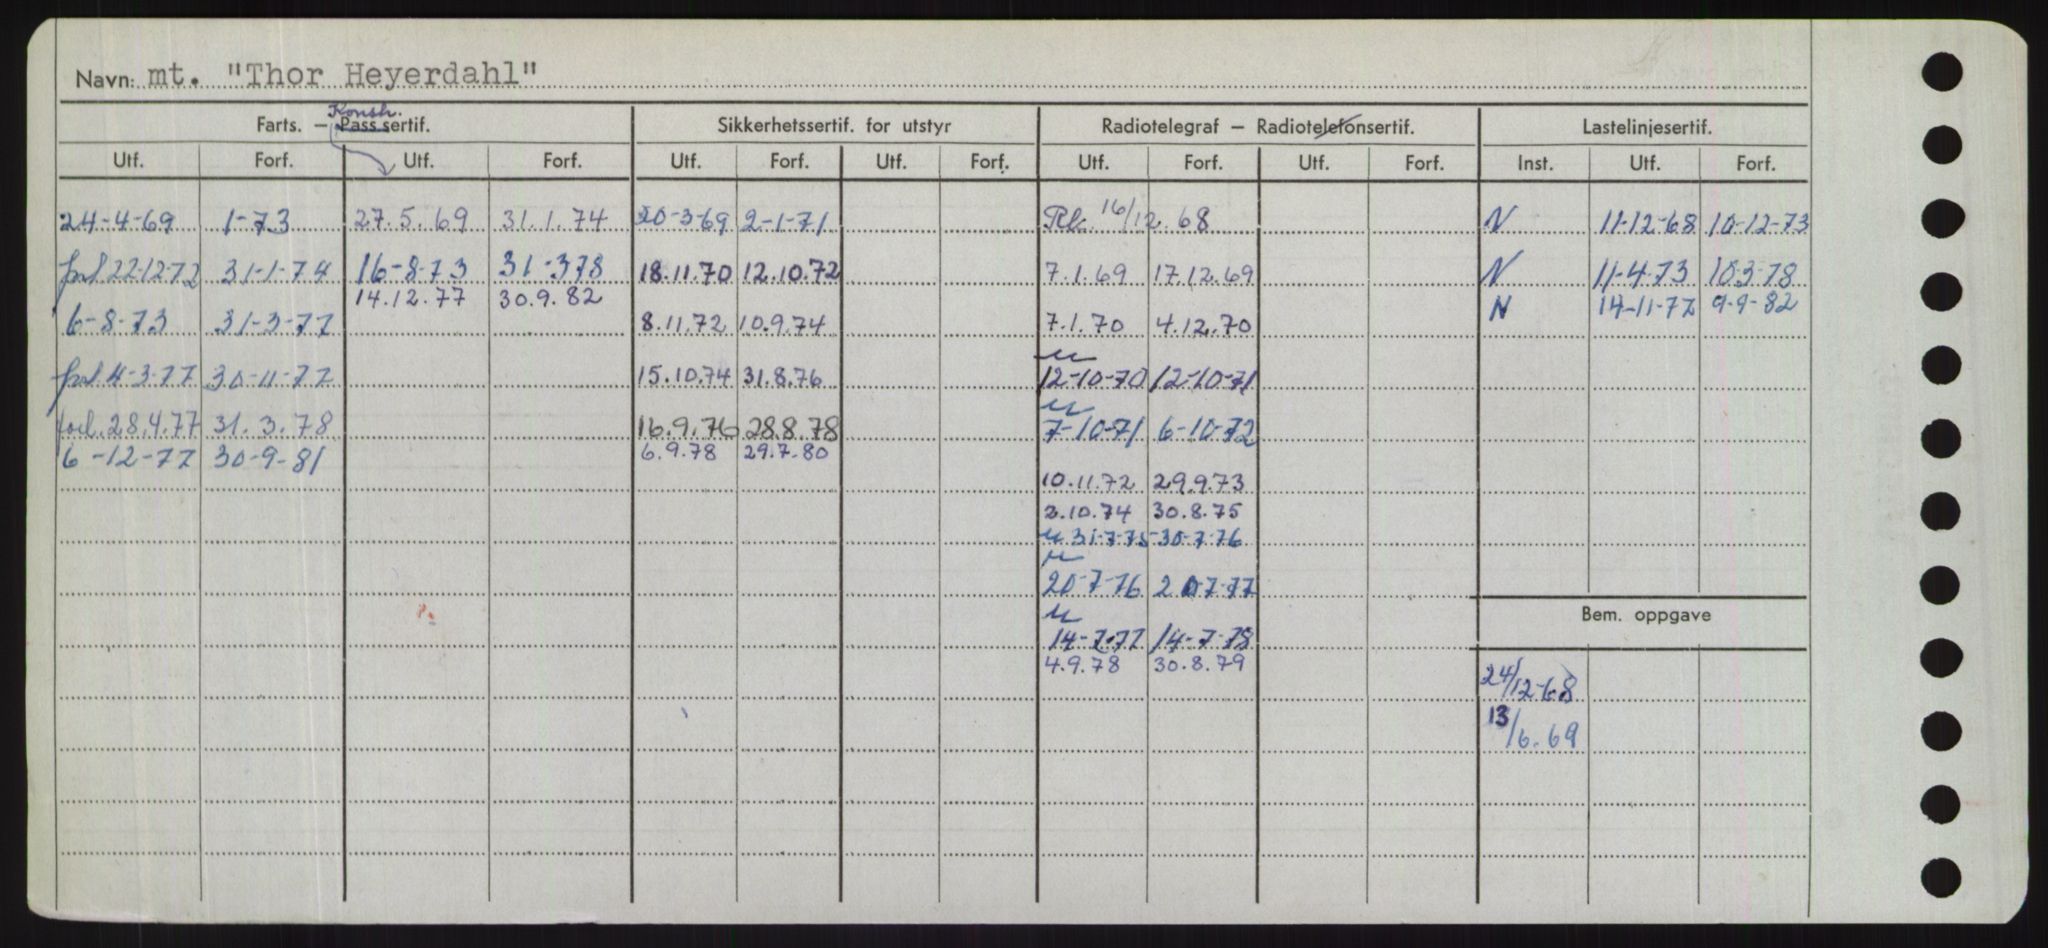 Navn: mt. "Thor Heyerdahl"
Konstr.
Farts. — Passsertif. Sikkerhetssertif. for utstyr Radiotelegraf — Radiotelefonsertif. Lastelinjesertif.
Utf. Forf. Utf. Forf. Utf. Forf. Utf. Forf. Utf. Forf. Utf. Forf. Inst. Utf. Forf.
24-4-69 1-73 27.5.69 31.1.74 20-3-69 2-1-71 16/12.68 N 11-12-68 10-12-73
22-12-72 31-1-74 16-8-73 31-378 18.11.70 12.10.72 7.1.69 17.12.69 N 11-4-73 10-3-78
14.12.77 30.9.82 N 14-11-77 9-9-82
6-8-73 31-3-77 8.11.72 10.9.74 7.1.70 4.12.70
4-3-77 30-11-77 15.10.74 31.8.76 12-10-70 12-10-71
28.4.77 31.3.78 16.9.76 28.8.78 7-10-71 6-10-72
6-12-77 30-9-81 6.9.78 29.7.80
10.11.72 29.9.73
2.10.74 30.8.75
31-7-75 30-7-76
20-7-76 20-7-77
Bem. oppgave
14-7-77 14-7-78
4.9.78 30.8.79
24/12-68
13/6.69